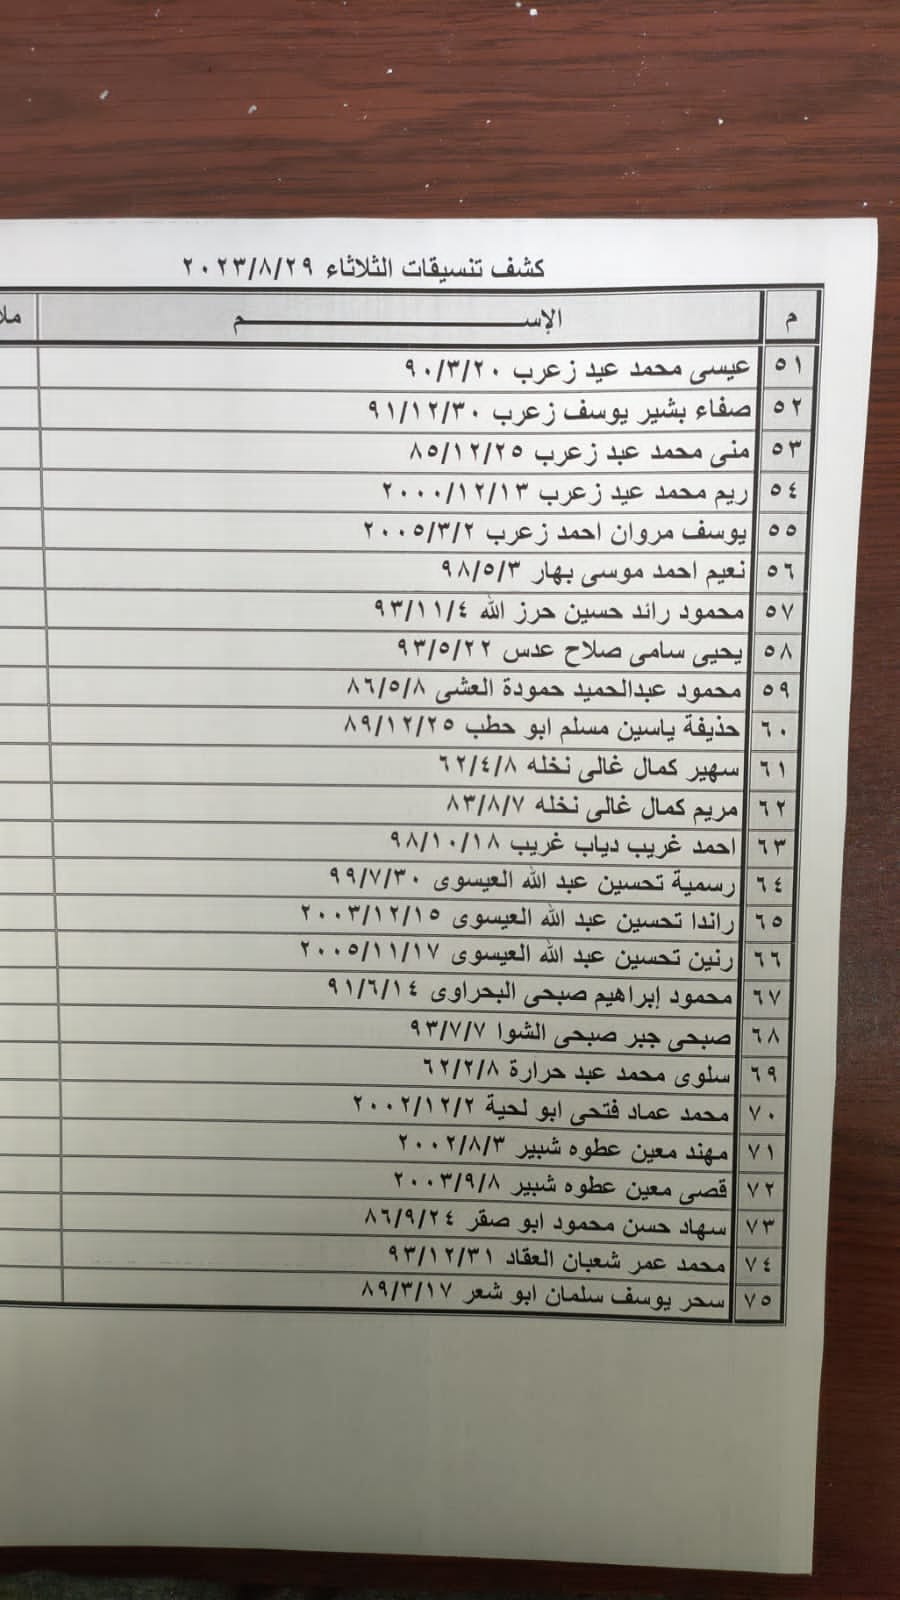 كشف تنسيقات الثلاثاء ٢٠٢٣/٨/٢٩
م الإســـــــــم ملا
٥١ عيسى محمد عيد زعرب ٩٠/٣/٢٠
٥٢ صفاء بشير يوسف زعرب ٩١/١٢/٣٠
٥٣ منى محمد عبد زعرب ٨٥/١٢/٢٥
٥٤ ريم محمد عيد زعرب ٢٠٠٠/١٢/١٣
٥٥ يوسف مروان احمد زعرب ٢٠٠٥/٣/٢
٥٦ نعيم احمد موسى بهار ٩٨/٥/٣
٥٧ محمود رائد حسين حرز الله ٩٣/١١/٤
٥٨ يحيى سامى صلاح عدس ٩٣/٥/٢٢
٥٩ محمود عبدالحميد حمودة العشى ٨٦/٥/٨
٦٠ حذيفة ياسين مسلم ابو حطب ٨٩/١٢/٢٥
٦١ سهير كمال غالى نخله ٦٢/٤/٨
٦٢ مريم كمال غالى نخله ٨٣/٨/٧
٦٣ احمد غريب دياب غريب ٩٨/١٠/١٨
٦٤ رسمية تحسين عبد الله العيسوى ٩٩/٧/٣٠
٦٥ راندا تحسين عبد الله العيسوى ٢٠٠٣/١٢/١٥
٦٦ رنين تحسين عبد الله العيسوى ٢٠٠٥/١١/١٧
٦٧ محمود إبراهيم صبحى البحراوى ٩١/٦/١٤
٦٨ صبحى جبر صبحى الشوا ٩٣/٧/٧
٦٩ سلوى محمد عبد حرارة ٦٢/٢/٨
٧٠ محمد عماد فتحى ابو لحية ٢٠٠٢/١٢/٢
٧١ مهند معين عطوه شبير ٢٠٠٢/٨/٣
٧٢ قصى معين عطوه شبير ٢٠٠٣/٩/٨
٧٣ سهاد حسن محمود ابو صقر ٨٦/٩/٢٤
٧٤ محمد عمر شعبان العقاد ٩٣/١٢/٣١
٧٥ سحر يوسف سلمان ابو شعر ٨٩/٣/١٧